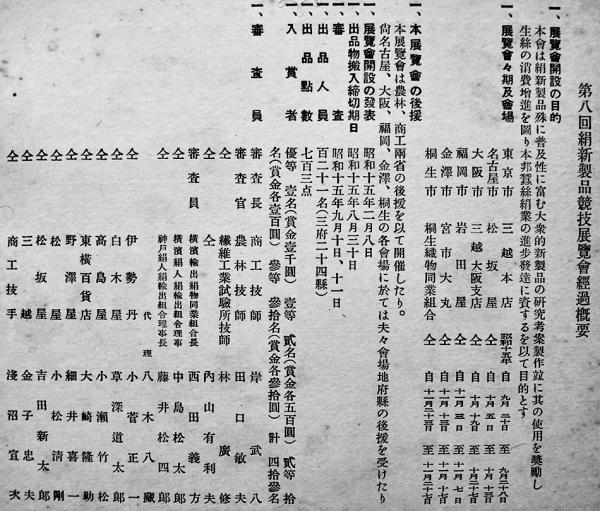 第八回絹新製品競技展覽會經過概要
一、展覽會開設の目的
本會は絹新製品殊に普及性に富む大衆的新製品の研究考案製作竝に其の使用を奬勵し
生絲の消費增進を圖り本邦蠶絲絹業の進步發達に資するを以て目的とす
一、展覽會々期及會場
東京市 三越本店 昭和十五年 自 九月二十日 至 九月二十八日
名古屋市 松坂屋 仝 自 十月五日 至 十月十三日
大阪市 三越大阪支店 仝 自
福岡市 岩田屋 仝 自 十一月三日 至 十一月七日
金澤市 宮市大丸 仝 自 十一月十三日 至 十一月十七日
桐生市 桐生織物同業組合 仝 自 十一月二十三日 至 十一月二十七日
一、本展覽會の後援
本展覽會は農林、商工兩省の後援を以て開催したり。
尙名古屋、大阪、福岡、金澤、桐生の各會場に於ては夫々會場地府縣の後援を受けたり
一、展覽會開設の發表 昭和十五年二月八日
一、出品物搬入締切期日 昭和十五年八月三十日
一、審査 昭和十五年九月十日、十一日
一、出品人員 百二十一名(三府二十四縣)
一、出品點數 七百三點
一、入賞者 優等 壹名(賞金壹千圓) 壹等 貳名(賞金各五百圓) 貳等 拾
名(賞金各壹百圓) 參等 參拾名(賞金各參拾圓) 計 四拾參名
一、審査員 審査長 商工技師 岸武八
審査官 農林技師 田口敏夫
仝 纖維工業試驗所技師 林廣修
仝 仝 內山有利夫
審査員 橫濱輸出絹物同業組合長 西田義方
仝 橫濱絹人絹輸出組合理事 中島松太郎
仝 神戶絹人絹輸出組合理事長 藤井松四郎
代理 八木八藏
仝 伊勢丹 小菅正一
仝 白木屋 草深道太郎
仝 高島屋 小瀨竹松
仝 東橫百貨店 大崎隆助
仝 野澤屋 細井喜一
仝 松屋 小松淸剛
仝 松坂屋 吉田新太郎
仝 三越 金子忠夫
仝 商工技手 淺沼宜次